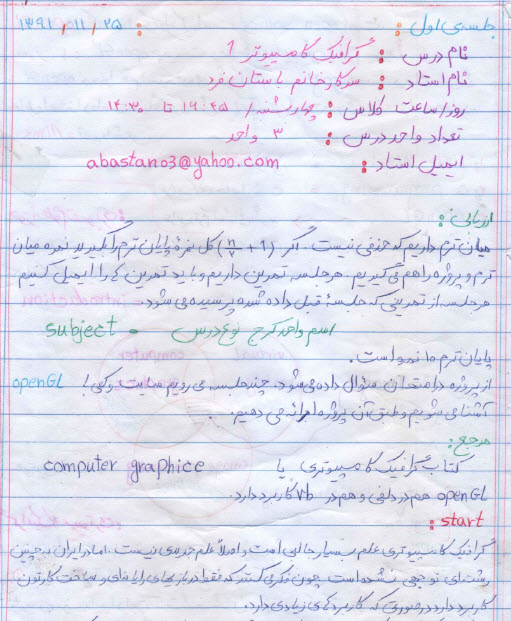 جلسه‌ی اول : ۱۳۹۱/۱۱/۲۵
نام درس : گرافیک کامپیوتر 1
نام استاد : سرکار خانم باستان فرد
روز/ساعت کلاس : چهارشنبه/ ۱۶:۴۵ تا ۱۴:۳۰
تعداد واحد درس : ۳ واحد
ایمیل استاد : abastan03@yahoo.com
ارزیابی :
میان ترم داریم که حذفی نیست. اگر کل نمره پایان ترم را بگیرید نمره میان
ترم و پروژه را هم می گیریم. هر جلسه تمرین داریم و باید تمرین ها را ایمیل کنیم
هر جلسه از تمرینی که جلسه قبل داده شده پرسیده می شود.
اسم واحد کرج نوع درس subject
پایان ترم ۱۰ نمره است.
از پروژه در امتحان سؤال داده می شود. چند جلسه می رویم سایت و کمی با openGL
آشنا می شویم و طبق آن پروژه ارائه می دهیم.
مرجع:
کتاب گرافیک کامپیوتری یا computer graphice
openGL هم در دلفی و هم در vb کاربرد دارد.
start :
گرافیک کامپیوتری علم بسیار جالبی است و اصلاً علم جدیدی نیست، اما در ایران به چنین
رشته‌ای توجهی نشده است چون فکر می کنند که فقط در بازیهای رایانه‌ای و ساخت کارتون
کاربرد دارد در صورتی که کاربردهای زیادی دارد.